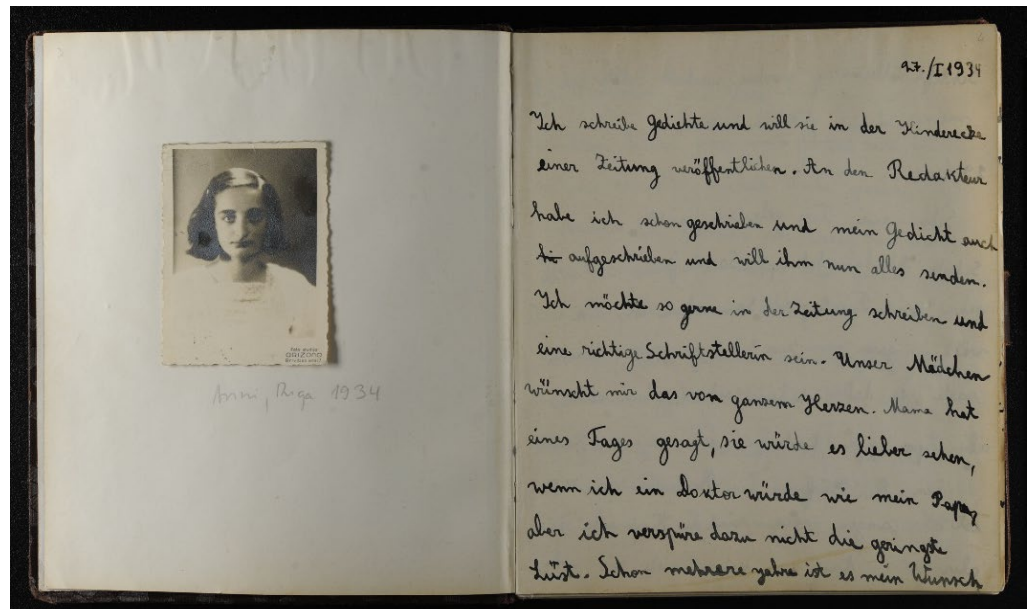 ORIZONT
Anni, Riga 1934
27./I 1934
Ich schreibe Gedichte und will sie in der Kinderecke
einer Zeitung veröffentlichen. An den Redakteur
habe ich schon geschrieben und mein Gedicht auch
aufgeschrieben und will ihm nun alles senden.
Ich möchte so gerne in der Zeitung schreiben und
eine richtige Schriftstellerin sein. Unser Mädchen
wünscht mir das vom ganzem Herzen. Mama hat
eines Tages gesagt, sie würde es lieber sehen,
wenn ich ein Doktor würde wie mein Papa,
aber ich verspüre dazu nicht die geringste
Lust. Schon mehrere Jahre ist es mein Wunsch